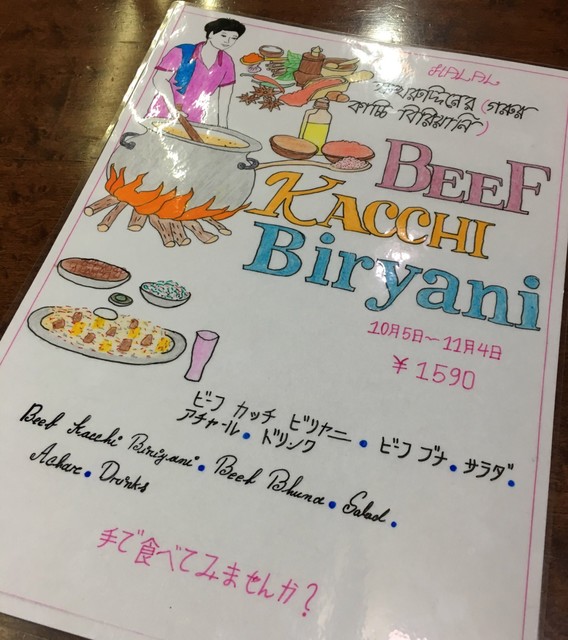 HALAL
ফখরুদ্দিনের (গরুর
কাচ্চি বিরিয়ানি)
BEEF
KACCHI
Biryani
10月5日~11月4日
¥1590
ビーフ カッチ ビリヤニ • ビーフ ブナ • サラダ •
アチャール • ドリンク
Beef Kacchi Biriyani • Beef Bhuna • Salad •
Achar • Drinks
手で食べてみませんか?